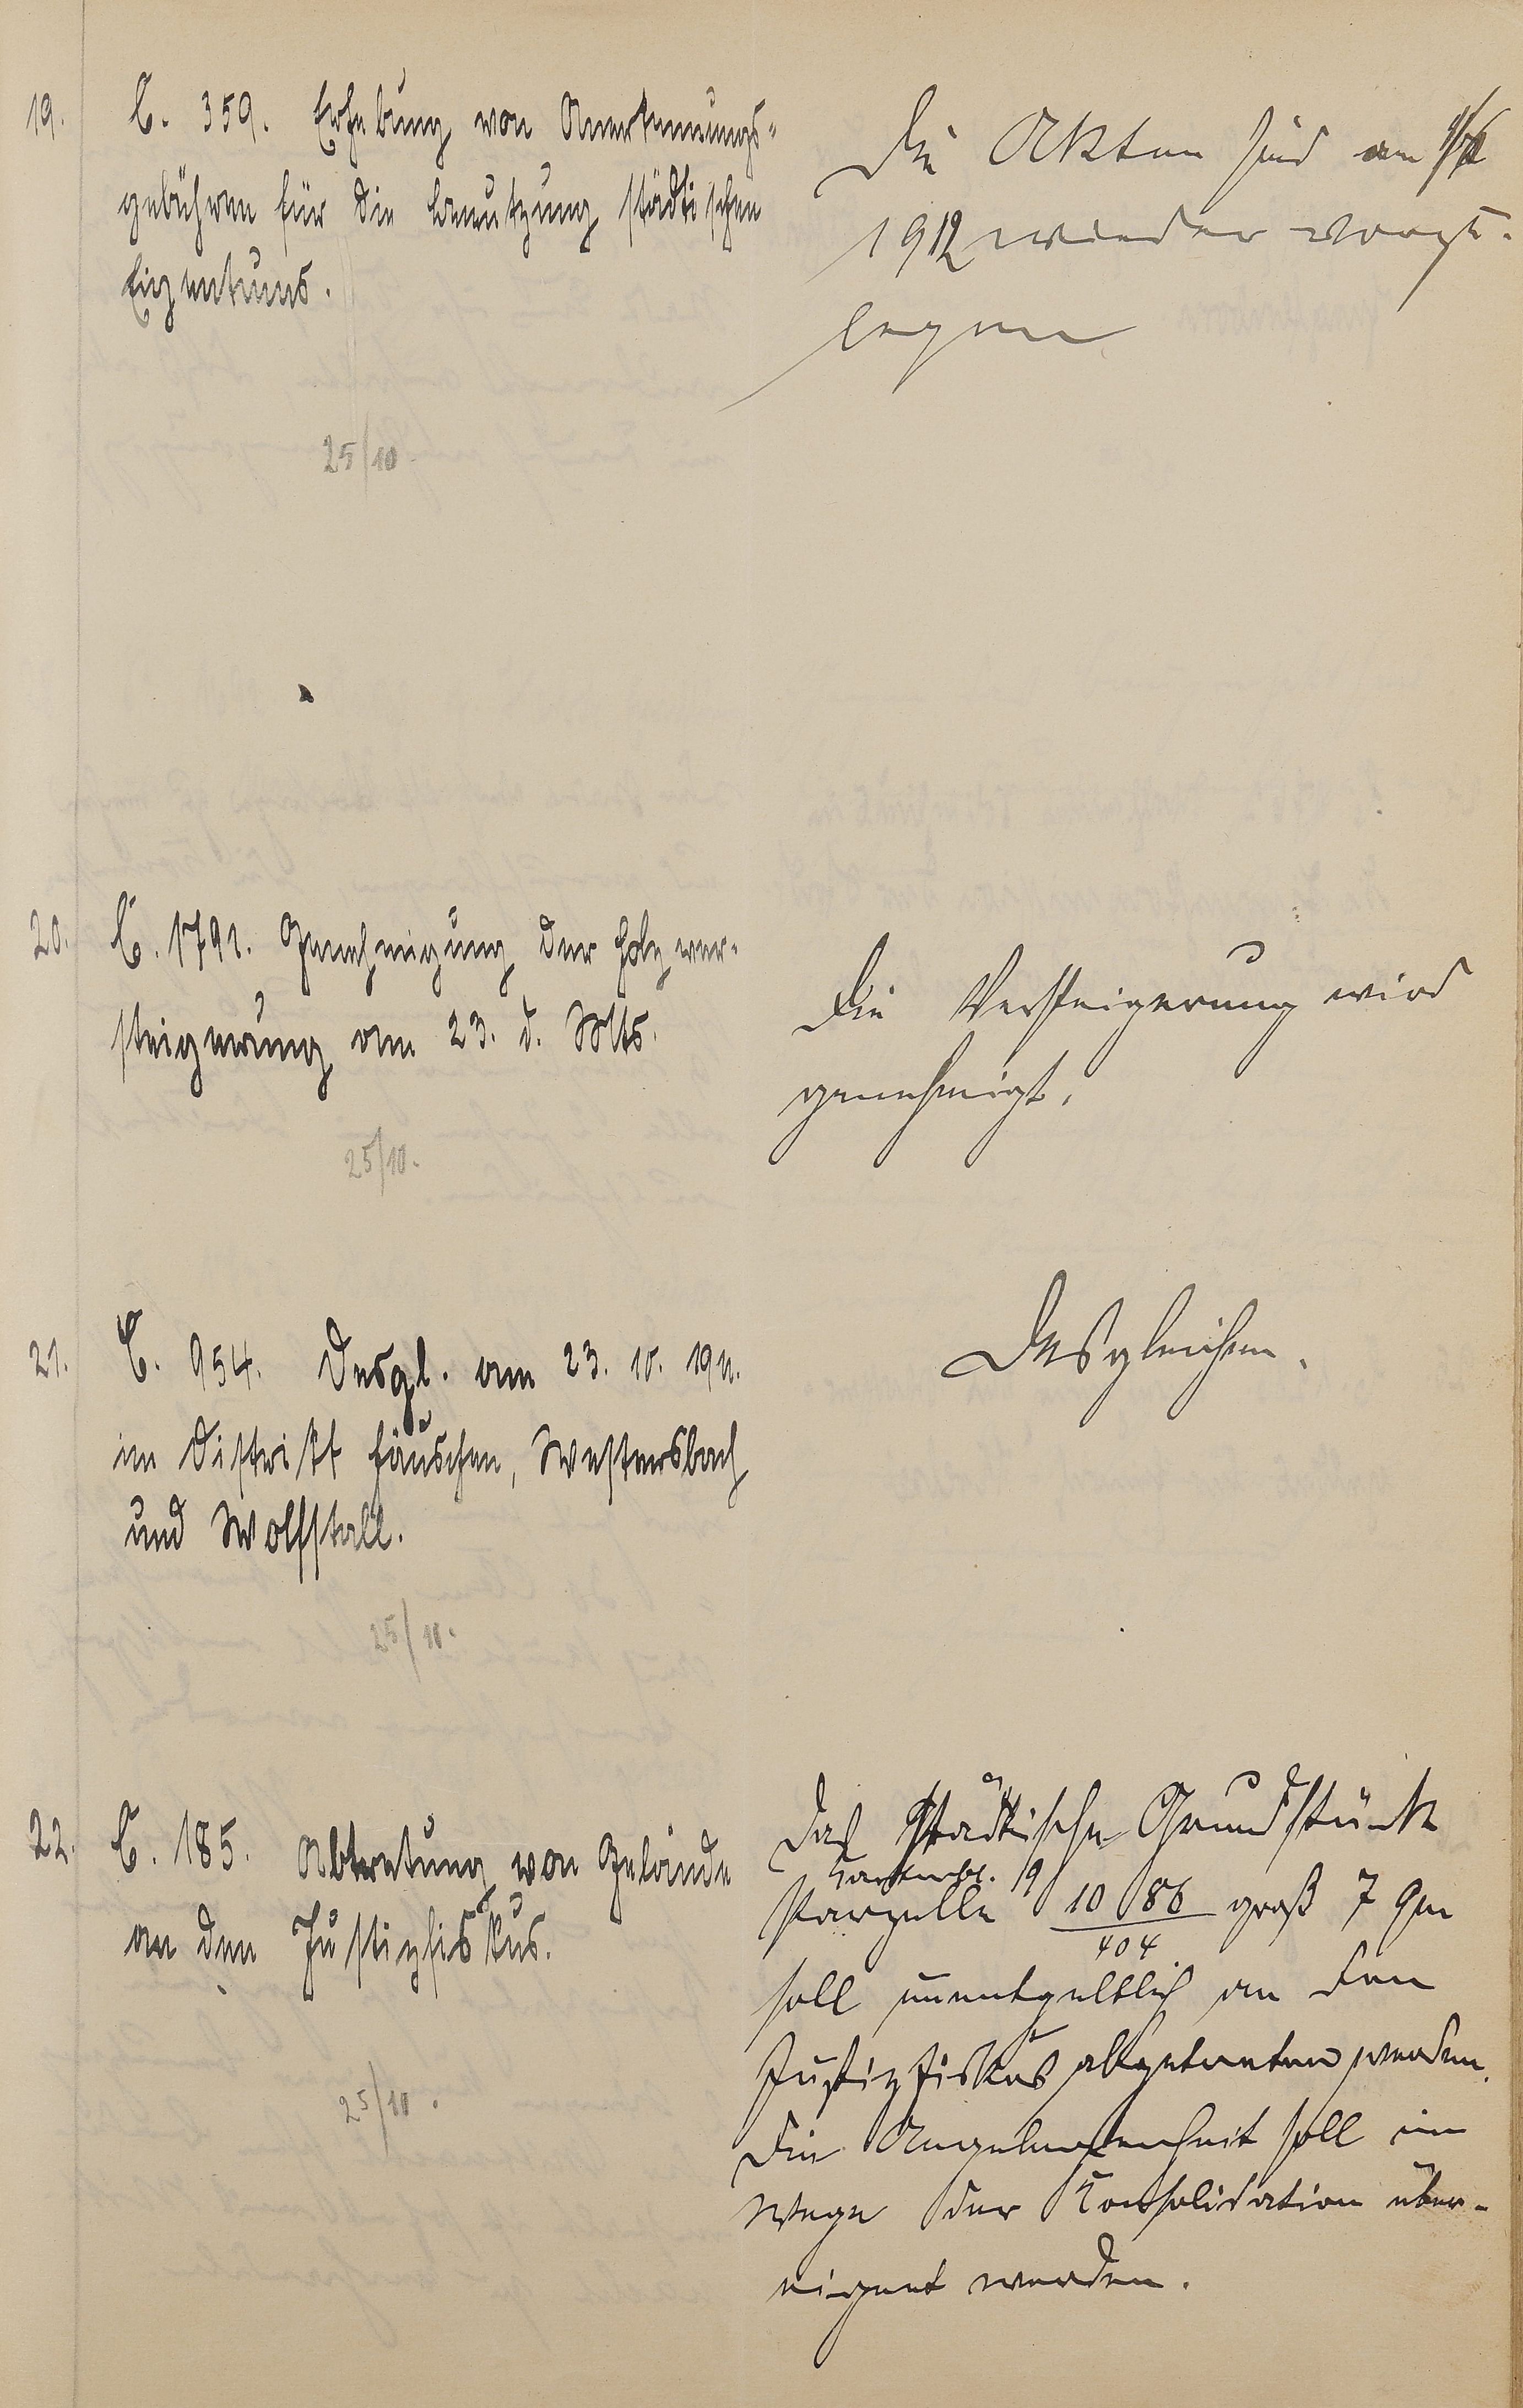 19.
C. 359. Erhebung von Anerkennungs-
gebühren für die Benutzung städtischen
Eigentums.
25/10.
Die Akten sind am
1912 wieder vorzu-
legen
20.
C. 1791. Genehmigung der Holzver-
steigerung vom 23. d. Mts.
25/10.
Die Versteigerung wird
genehmigt.
21.
C. 954. Desgl. vom 23. 10. 1911.
im Distrikt Häuschen, Westersbach
und Wolfstall.
25/10.
Desgleichen.
22.
C. 185. Abtretung von Gelände
an den Justizfiskus.
25/10.
Das städtische Grundstück
Kartenbl. 19
Parzelle 1086/404 groß 7 qm
soll unentgeltlich an den
Justizfiskus abgetreten werden.
Die Angelegenheit soll im
Wege der Konsolidation über-
eignet werden.